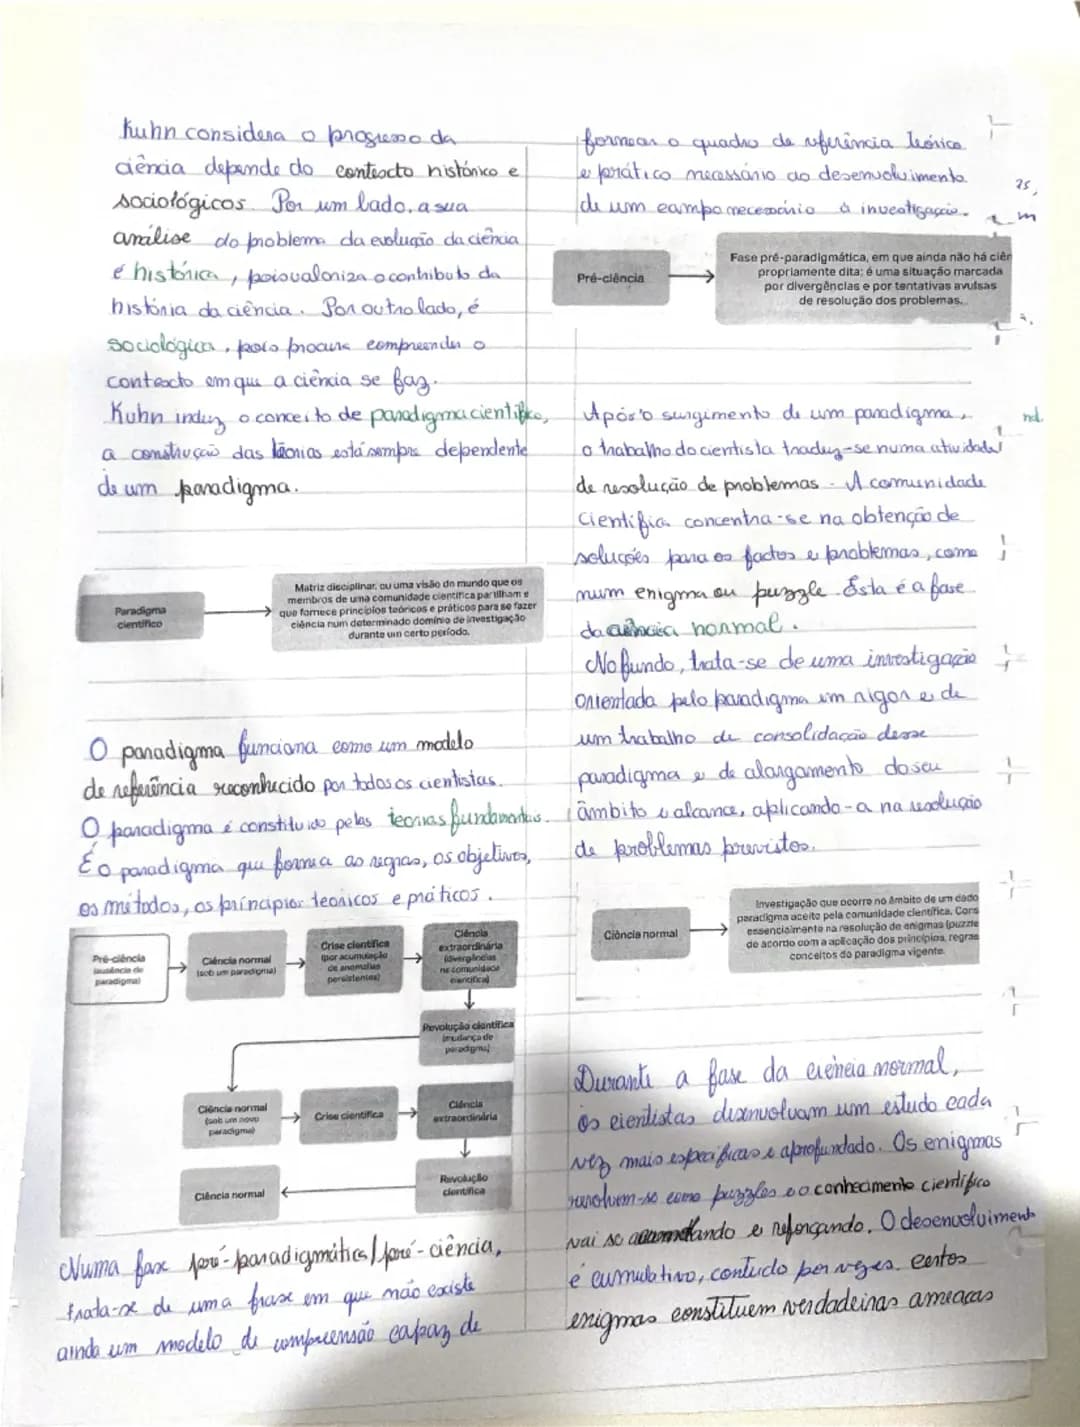 Kuhn considera o progresso da
ciência depende do contexto histórico e
sociológicos. Por um lado, a sua
análise do problema da evolução da ciência
é histórica, pois valoriza o contributo da
história da ciência. Por outro lado, é
sociológica, pois procura compreender o
contexto em que a ciência se faz.
Kuhn induz o conceito de paradigma científico,
a construção das teorias está sempre dependente
de um paradigma.
Paradigma
científico
Matriz disciplinar, ou uma visão do mundo que os
membros de uma comunidade científica partilham e
que fornece princípios teóricos e práticos para se fazer
ciência num determinado domínio de investigação
durante um certo período.
O paradigma funciona como um modelo
de referência reconhecido por todos os cientistas.
O paradigma é constituído pelas teorias fundamentais.
É o paradigma que fornece as regras, os objetivos,
os métodos, os princípios teóricos e práticos.
Pré-ciência
(ausência de
paradigma)
Ciência normal
(sob um paradigma)
Crise científica
(por acumulação
de anomalias
persistentes)
Ciência
extraordinária
(divergências
na comunidade
científica)
Revolução científica
(mudança de
paradigma)
Ciência normal
(sob um novo
paradigma)
Crise científica
Ciência
extraordinária
Revolução
científica
Ciência normal
Numa fase pré-paradigmática/pré-ciência,
trata-se de uma frase em que não existe
ainda um modelo de compreensão capaz de
formar o quadro de referência teórico
e prático necessário ao desenvolvimento
de um campo necessário à investigação.
Pré-ciência
Fase pré-paradigmática, em que ainda não há ciên
propriamente dita; é uma situação marcada
por divergências e por tentativas avulsas
de resolução dos problemas.
Após o surgimento de um paradigma,
o trabalho do cientista traduz-se numa atividade
de resolução de problemas. A comunidade
científica concentra-se na obtenção de
soluções para os factos e problemas, como
num enigma ou puzzle. Esta é a fase
da ciência normal.
No fundo, trata-se de uma investigação
orientada pelo paradigma em vigor e de
um trabalho de consolidação desse
paradigma e de alargamento do seu
âmbito e alcance, aplicando-a na resolução
de problemas previstos.
Ciência normal
Investigação que ocorre no âmbito de um dado
paradigma aceito pela comunidade científica. Cons
essencialmente na resolução de enigmas (puzzle
de acordo com a aplicação dos princípios, regras
conceitos do paradigma vigente.
Durante a fase da ciência normal,
os cientistas desenvolvam um estudo cada
vez mais específicas e aprofundado. Os enigmas
resolvem-se como puzzles e o conhecimento científico
vai se acumulando e reforçando. O desenvolvimento
é cumulativo, contudo por vezes, certos
enigmas constituem verdadeiras ameaças